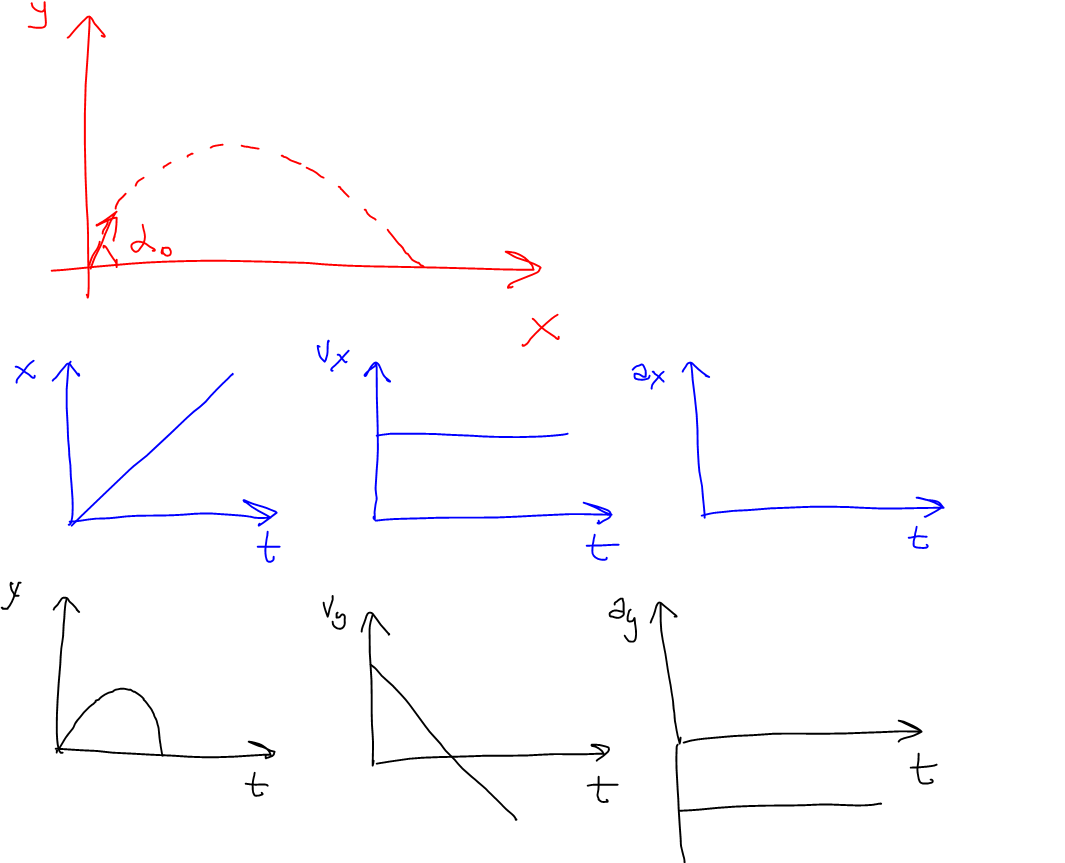 y
α₀
x
x
t
vx
t
ax
t
y
t
vy
t
ay
t